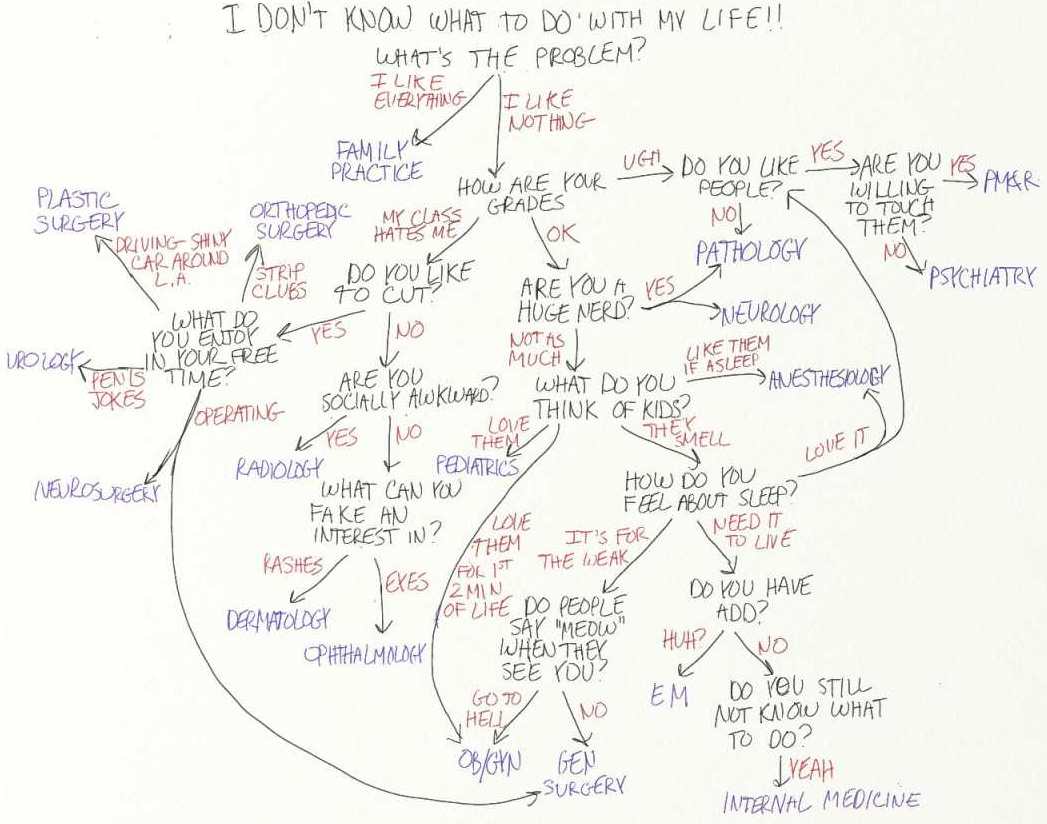 I DON'T KNOW WHAT TO DO WITH MY LIFE!!
WHAT'S THE PROBLEM?
I LIKE
EVERYTHING
I LIKE
NOTHING
FAMILY
PRACTICE
HOW ARE YOUR
GRADES
UGH
DO YOU LIKE
PEOPLE?
YES
ARE YOU
WILLING
TO TOUCH
THEM?
YES
PM&R
NO
PSYCHIATRY
NO
PATHOLOGY
MY CLASS
HATES ME
OK
DO YOU LIKE
TO CUT?
YES
NO
WHAT DO
YOU ENJOY
IN YOUR FREE
TIME?
PLASTIC
SURGERY
DRIVING SHINY
CAR AROUND
L.A.
ORTHOPEDIC
SURGERY
STRIP
CLUBS
UROLOGY
PENIS
JOKES
OPERATING
NEUROSURGERY
ARE YOU
SOCIALLY AWKWARD?
YES
NO
RADIOLOGY
WHAT CAN YOU
FAKE AN
INTEREST IN?
RASHES
EYES
DERMATOLOGY
OPHTHALMOLOGY
ARE YOU A
HUGE NERD?
YES
NEUROLOGY
NOT AS
MUCH
WHAT DO YOU
THINK OF KIDS?
LIKE THEM
IF ASLEEP
ANESTHESIOLOGY
LOVE
THEM
PEDIATRICS
THEY
SMELL
LOVE
THEM
FOR 1ST
2 MIN
OF LIFE
HOW DO YOU
FEEL ABOUT SLEEP?
LOVE IT
IT'S FOR
THE WEAK
NEED IT
TO LIVE
DO PEOPLE
SAY "MEOW"
WHEN THEY
SEE YOU?
GO TO
HELL
NO
OB/GYN
GEN
SURGERY
DO YOU HAVE
ADD?
HUH?
NO
EM
DO YOU STILL
NOT KNOW WHAT
TO DO?
YEAH
INTERNAL MEDICINE